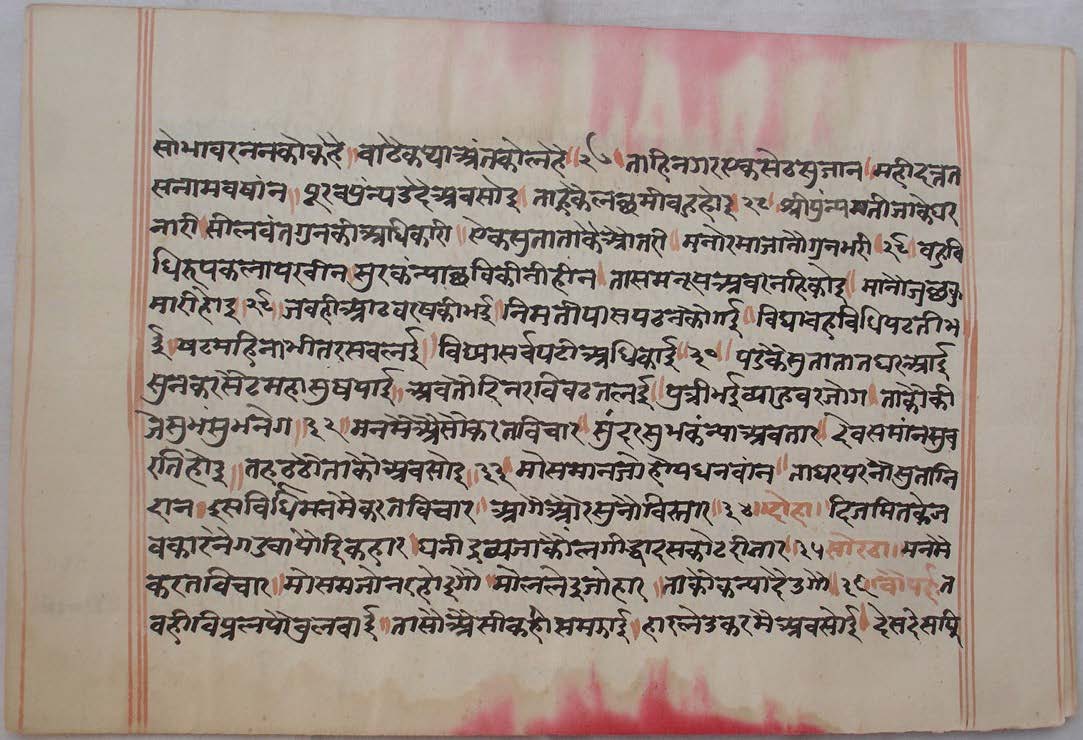 सोभावरननकोकहै ॥ वाढैकथाअंतकोलहै ॥ २७ ॥ ताहिनगरएकसेठसुजान ॥ महीदत्तत
सनामवषांन ॥ पूरवप्रंन्यउदैअवसोइ ॥ ताकैलछमीवहुहोइ ॥ २८ ॥ श्रीप्रंन्यमतीजाकेघर
नारी ॥ सीलवंतगुनकीअधिकारी ॥ एकसुताताकैऔतरी ॥ मनोरमाजानौगुनभरी ॥ २९ ॥ वहुवि
धिरूपकलापरवीन ॥ सुरकंन्याछविकीनीहींन ॥ तासमरूपअवरनहिकोइ ॥ मानौजछकु
मारीहोइ ॥ २९ ॥ जवहीआठवरषकीभई ॥ निमतीपासपढनकोगई ॥ विद्यावहुविधिपढतीभ
ई ॥ षटमहिनाभीतरसवलई ॥ विद्यासर्वपढीअधिकाई ॥ ३० ॥ पडकैसुतातातघरआई
सुनकरसेठमहासुषपाई ॥ अवतौदिनरविवढतलई ॥ पुत्रीभईव्याहवरजोग ॥ ताकौकी
जेसुभसुभनेग ॥ ३२ ॥ मनमैऐसौकरतविचार ॥ सुंदरसुभकंन्याअवतार ॥ देवसमांनसुव
रतिहोइ ॥ तहढढौताकौअवसोइ ॥ ३३ ॥ मोसमानजोहोयधनवांन ॥ ताघरपरनौसुतानि
दान ॥ इसविधिमनमैकरतविचार ॥ आगेऔरसुनौविस्तार ॥ ३४ ॥ दोहा ॥ दिजमितकेज
वकारनेगडवायोदिकहार ॥ घनीद्रव्यजाकौलगीद्वादसकोटदीनार ॥ ३५ ॥ सोरठा ॥ मनमै
करतविचार ॥ मोसमजोनरहोइगौ ॥ मोललेइजोहार ॥ ताकौकन्यादेउगौ ॥ ३६ ॥ चौपई ॥ त
वहीविप्रलयौवुलवाई ॥ तासोऐसीकहीसमझाई ॥ हारलेउकरमैअवसोई ॥ देसदेसपि